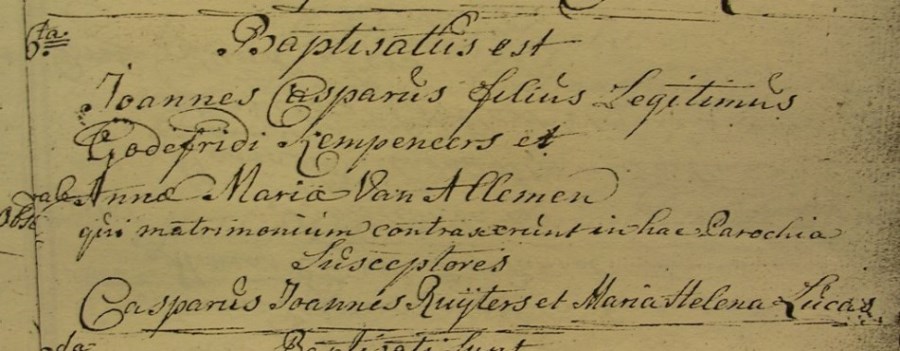 6ta Baptisatus est
Joannes Casparus filius Legitimus
Godefridi Kempeneers et
Annæ Mariæ Van Allemen
qui matrimonium contraxerunt in hac Parochia
Susceptores
Casparus Joannes Ruÿters et Maria Helena Lucas.
da Baptisati sunt